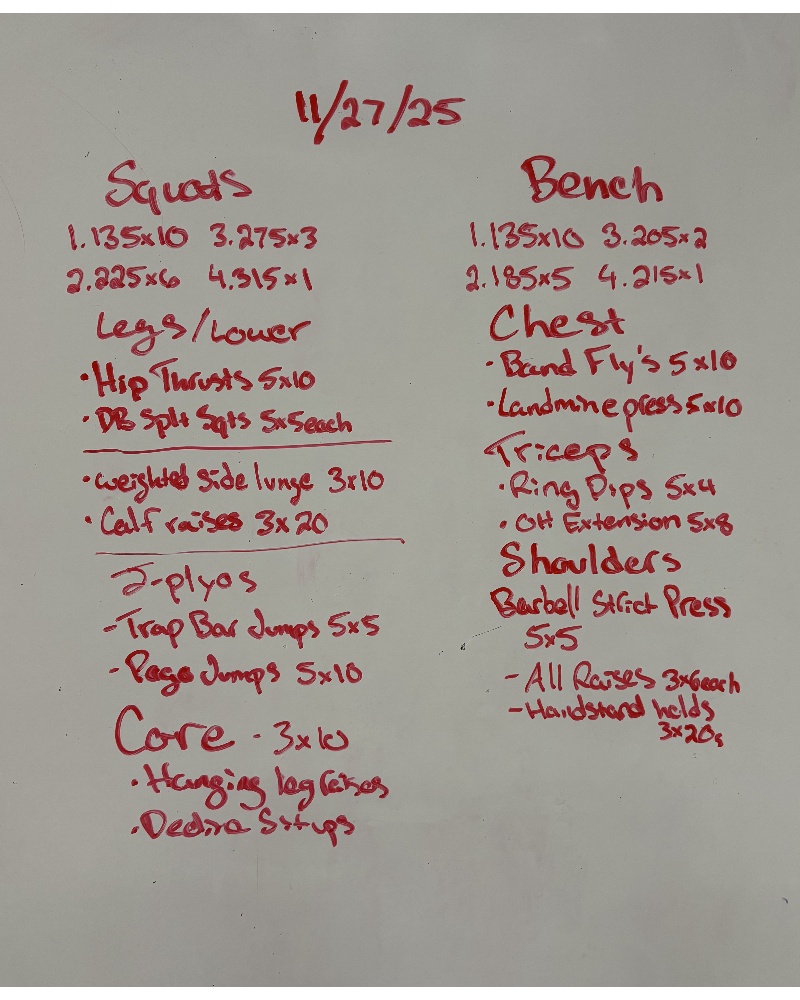 11/27/25
Squats
1.135x10 3.275x3
2.225x6 4.315x1
Legs/Lower
·Hip Thrusts 5x10
·DB Split Sqts 5x5each
·weighted side lunge 3x10
·Calf raises 3x20
2-plyos
-Trap Bar Jumps 5x5
-Pogo Jumps 5x10
Core ·3x10
·Hanging leg raises
·Decline Situps
Bench
1.135x10 3.205x2
2.185x5 4.215x1
Chest
·Band Fly's 5x10
·Landmine press 5x10
Triceps
·Ring Dips 5x4
·OH Extension 5x8
Shoulders
Barbell Strict Press
5x5
-All Raises 3x6each
-Handstand holds
3x20s